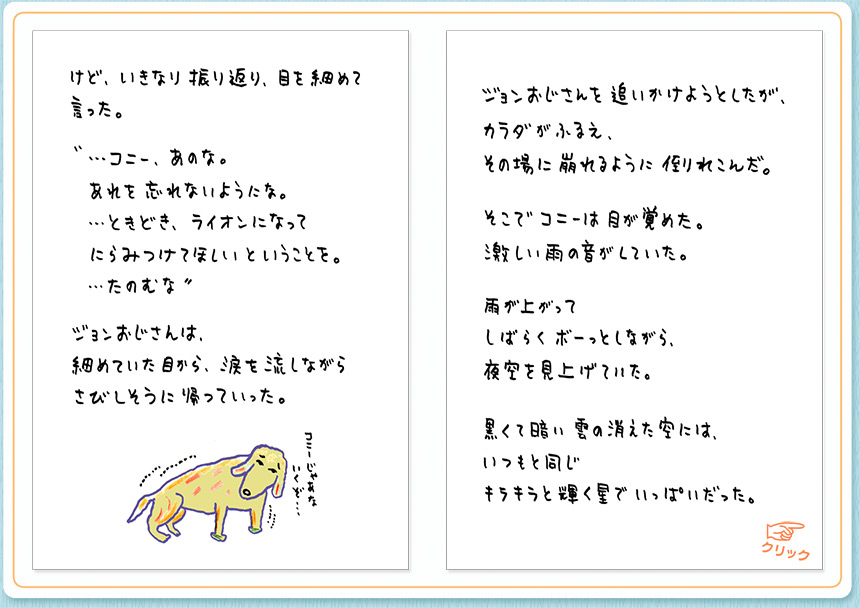 けど、いきなり振り返り、目を細めて
言った。
〝…コニー、あのな。
あれを忘れないようにな。
…ときどき、ライオンになって
にらみつけてほしいということを。
…たのむな〞
ジョンおじさんは、
細めていた目から、涙を流しながら
さびしそうに帰っていった。
コニーじゃあな
いくぞ…
ジョンおじさんを追いかけようとしたが、
カラダがふるえ、
その場に崩れるように倒れこんだ。
そこでコニーは目が覚めた。
激しい雨の音がしていた。
雨が上がって
しばらくボーっとしながら、
夜空を見上げていた。
黒くて暗い雲の消えた空には、
いつもと同じ
キラキラと輝く星でいっぱいだった。
クリック